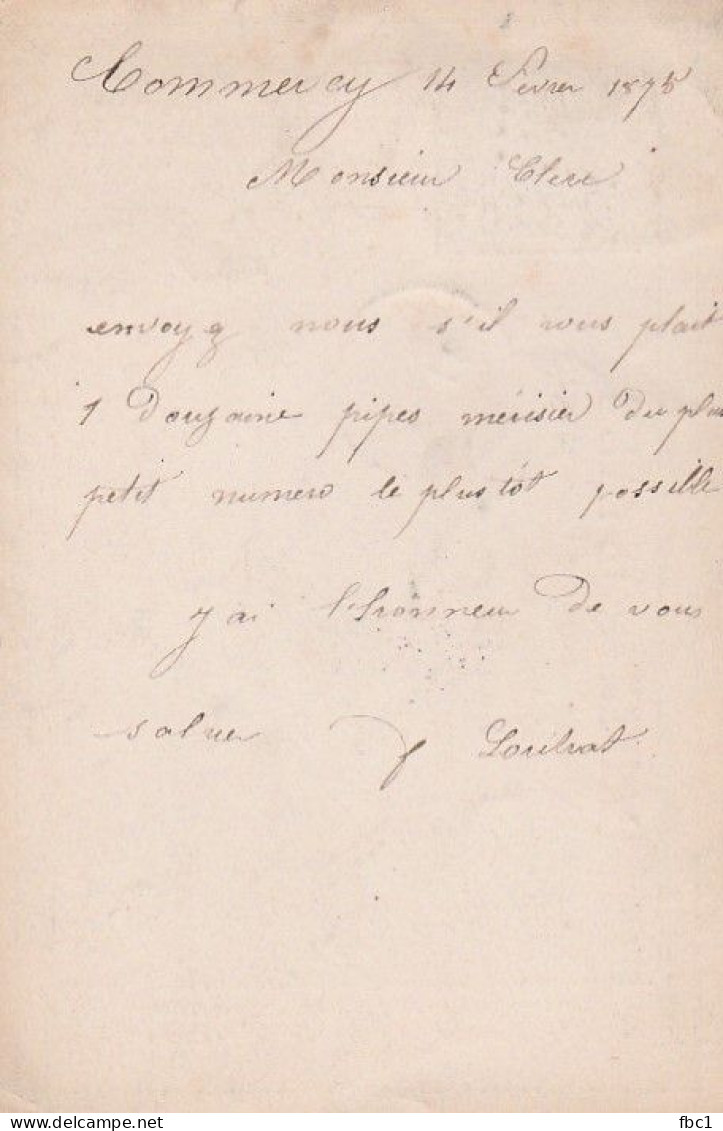 Commercy 14 Fevrer 1875
Monsieur Clerc
envoyez nous s'il vous plait
1 Douzaine pipes mérisier du plus
petit numero le plustôt possille
j ai l'honneur de vous
saluer
delcampe.net
fbc1